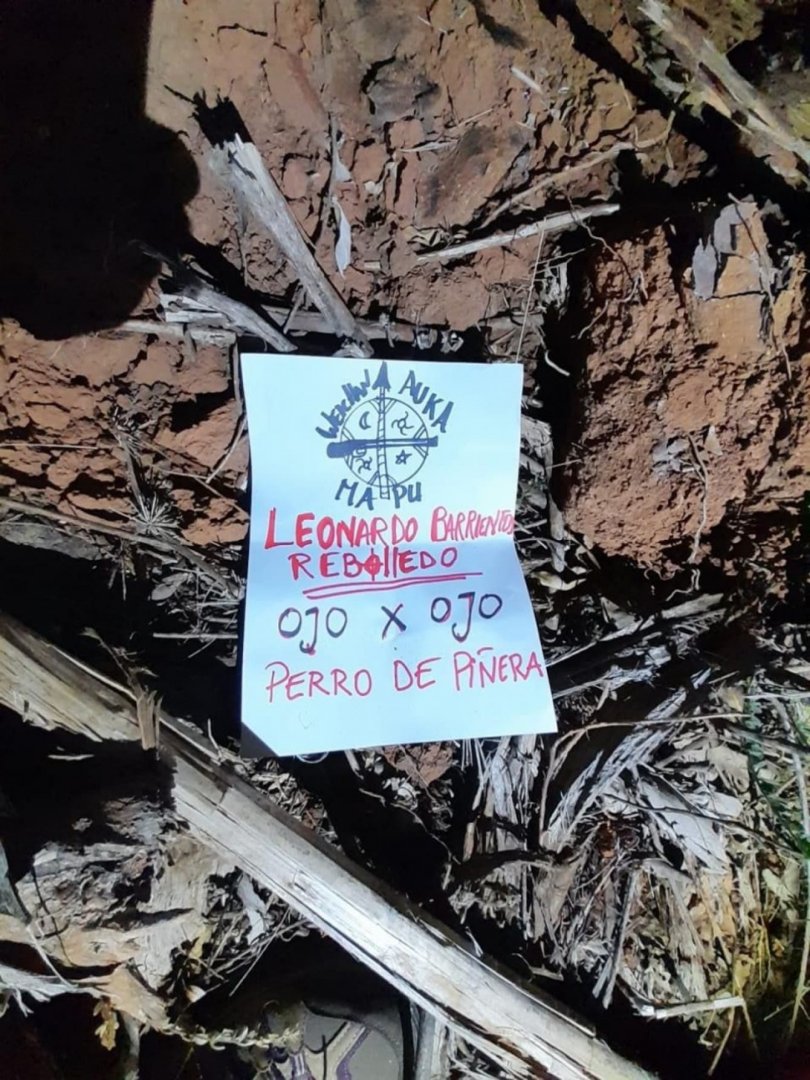 Weichan AUKA
MAPU
LEONARDO BARRIENTOS
REBOLLEDO
OJO X OJO
PERRO DE PIÑERA